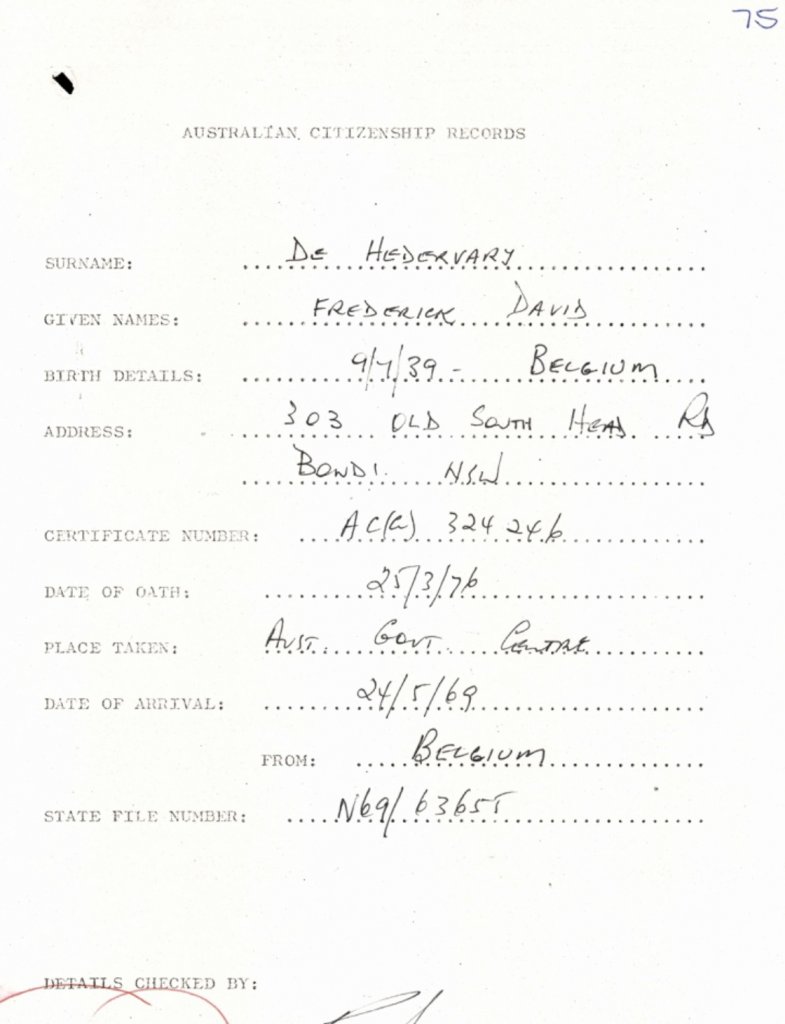 75
AUSTRALIAN CITIZENSHIP RECORDS
SURNAME: DE HEDERVARY
GIVEN NAMES: FREDERICK DAVID
BIRTH DETAILS: 9/7/39 - BELGIUM
ADDRESS: 303 OLD SOUTH HEAD RD
BONDI NSW
CERTIFICATE NUMBER: AC(G) 324246
DATE OF OATH: 25/3/76
PLACE TAKEN: AUST. GOVT CENTRE
DATE OF ARRIVAL: 24/5/69
FROM: BELGIUM
STATE FILE NUMBER: N69/63655
DETAILS CHECKED BY: